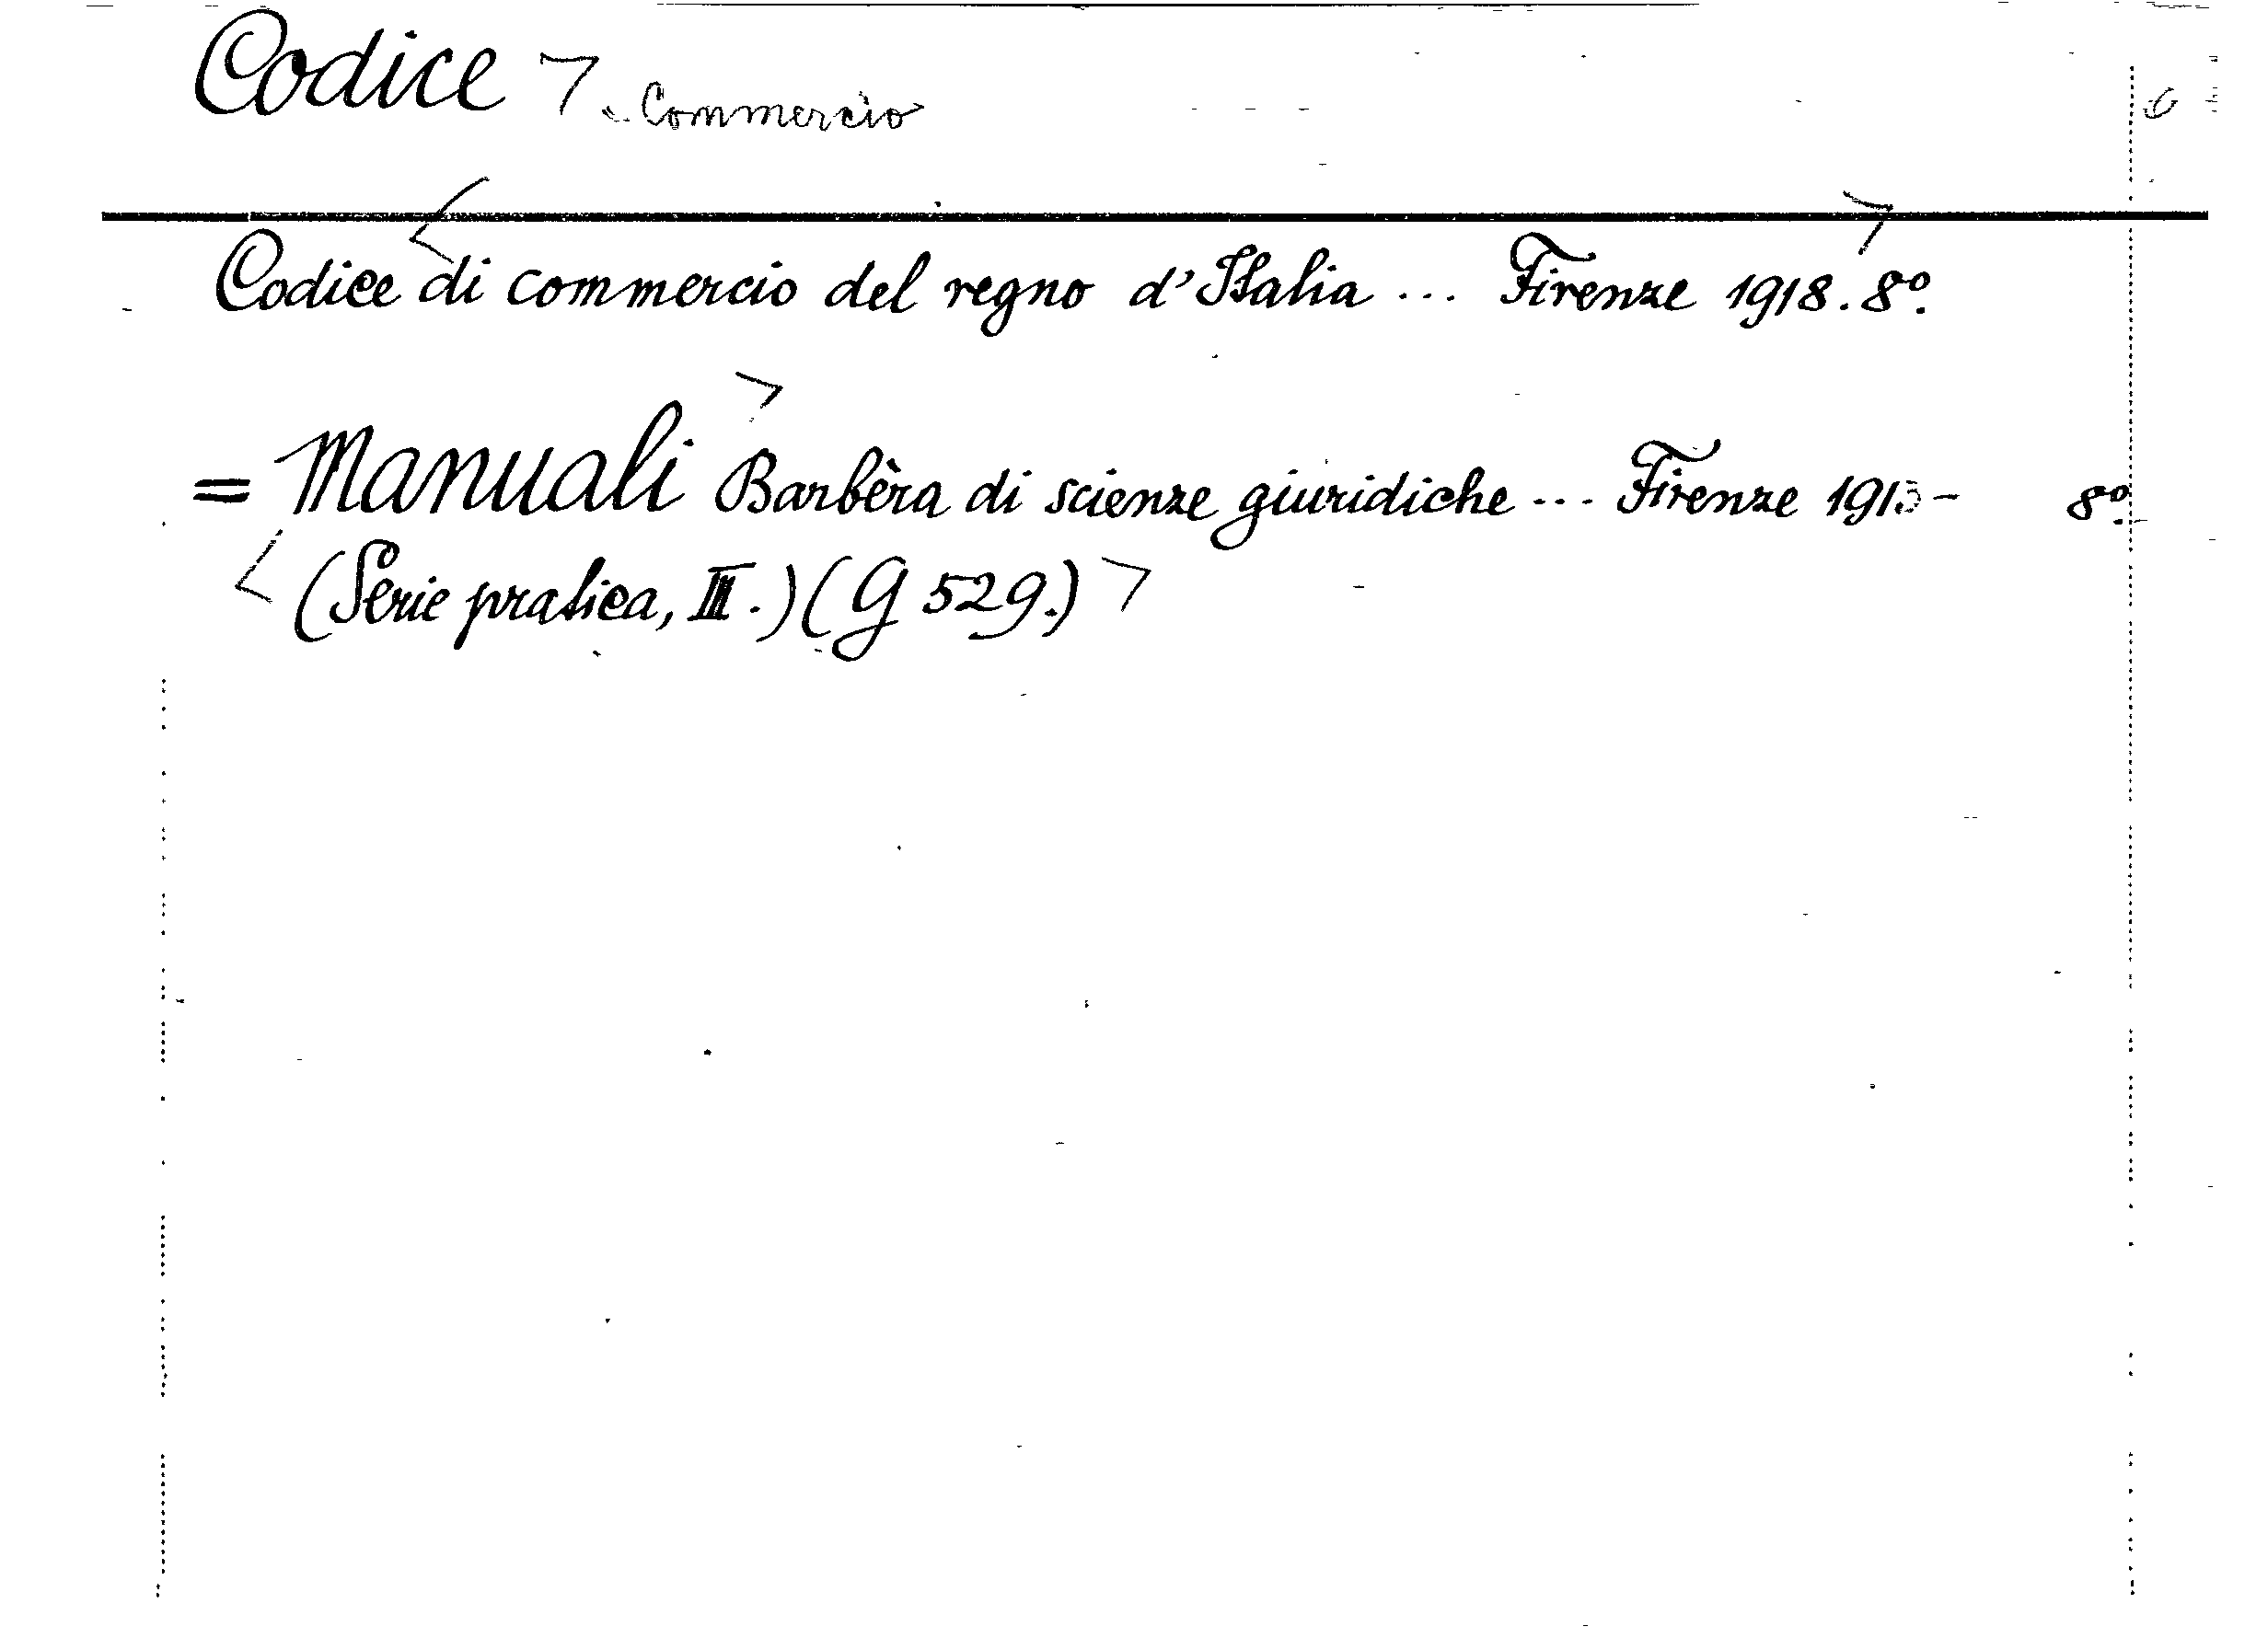 Codice - Commercio
Codice di commercio del regno d'Italia ... Firenze 1918. 8º.
= Manuali Barbèra di scienze giuridiche ... Firenze 1913- 8º.
(Serie pratica, III.) (G 529.)